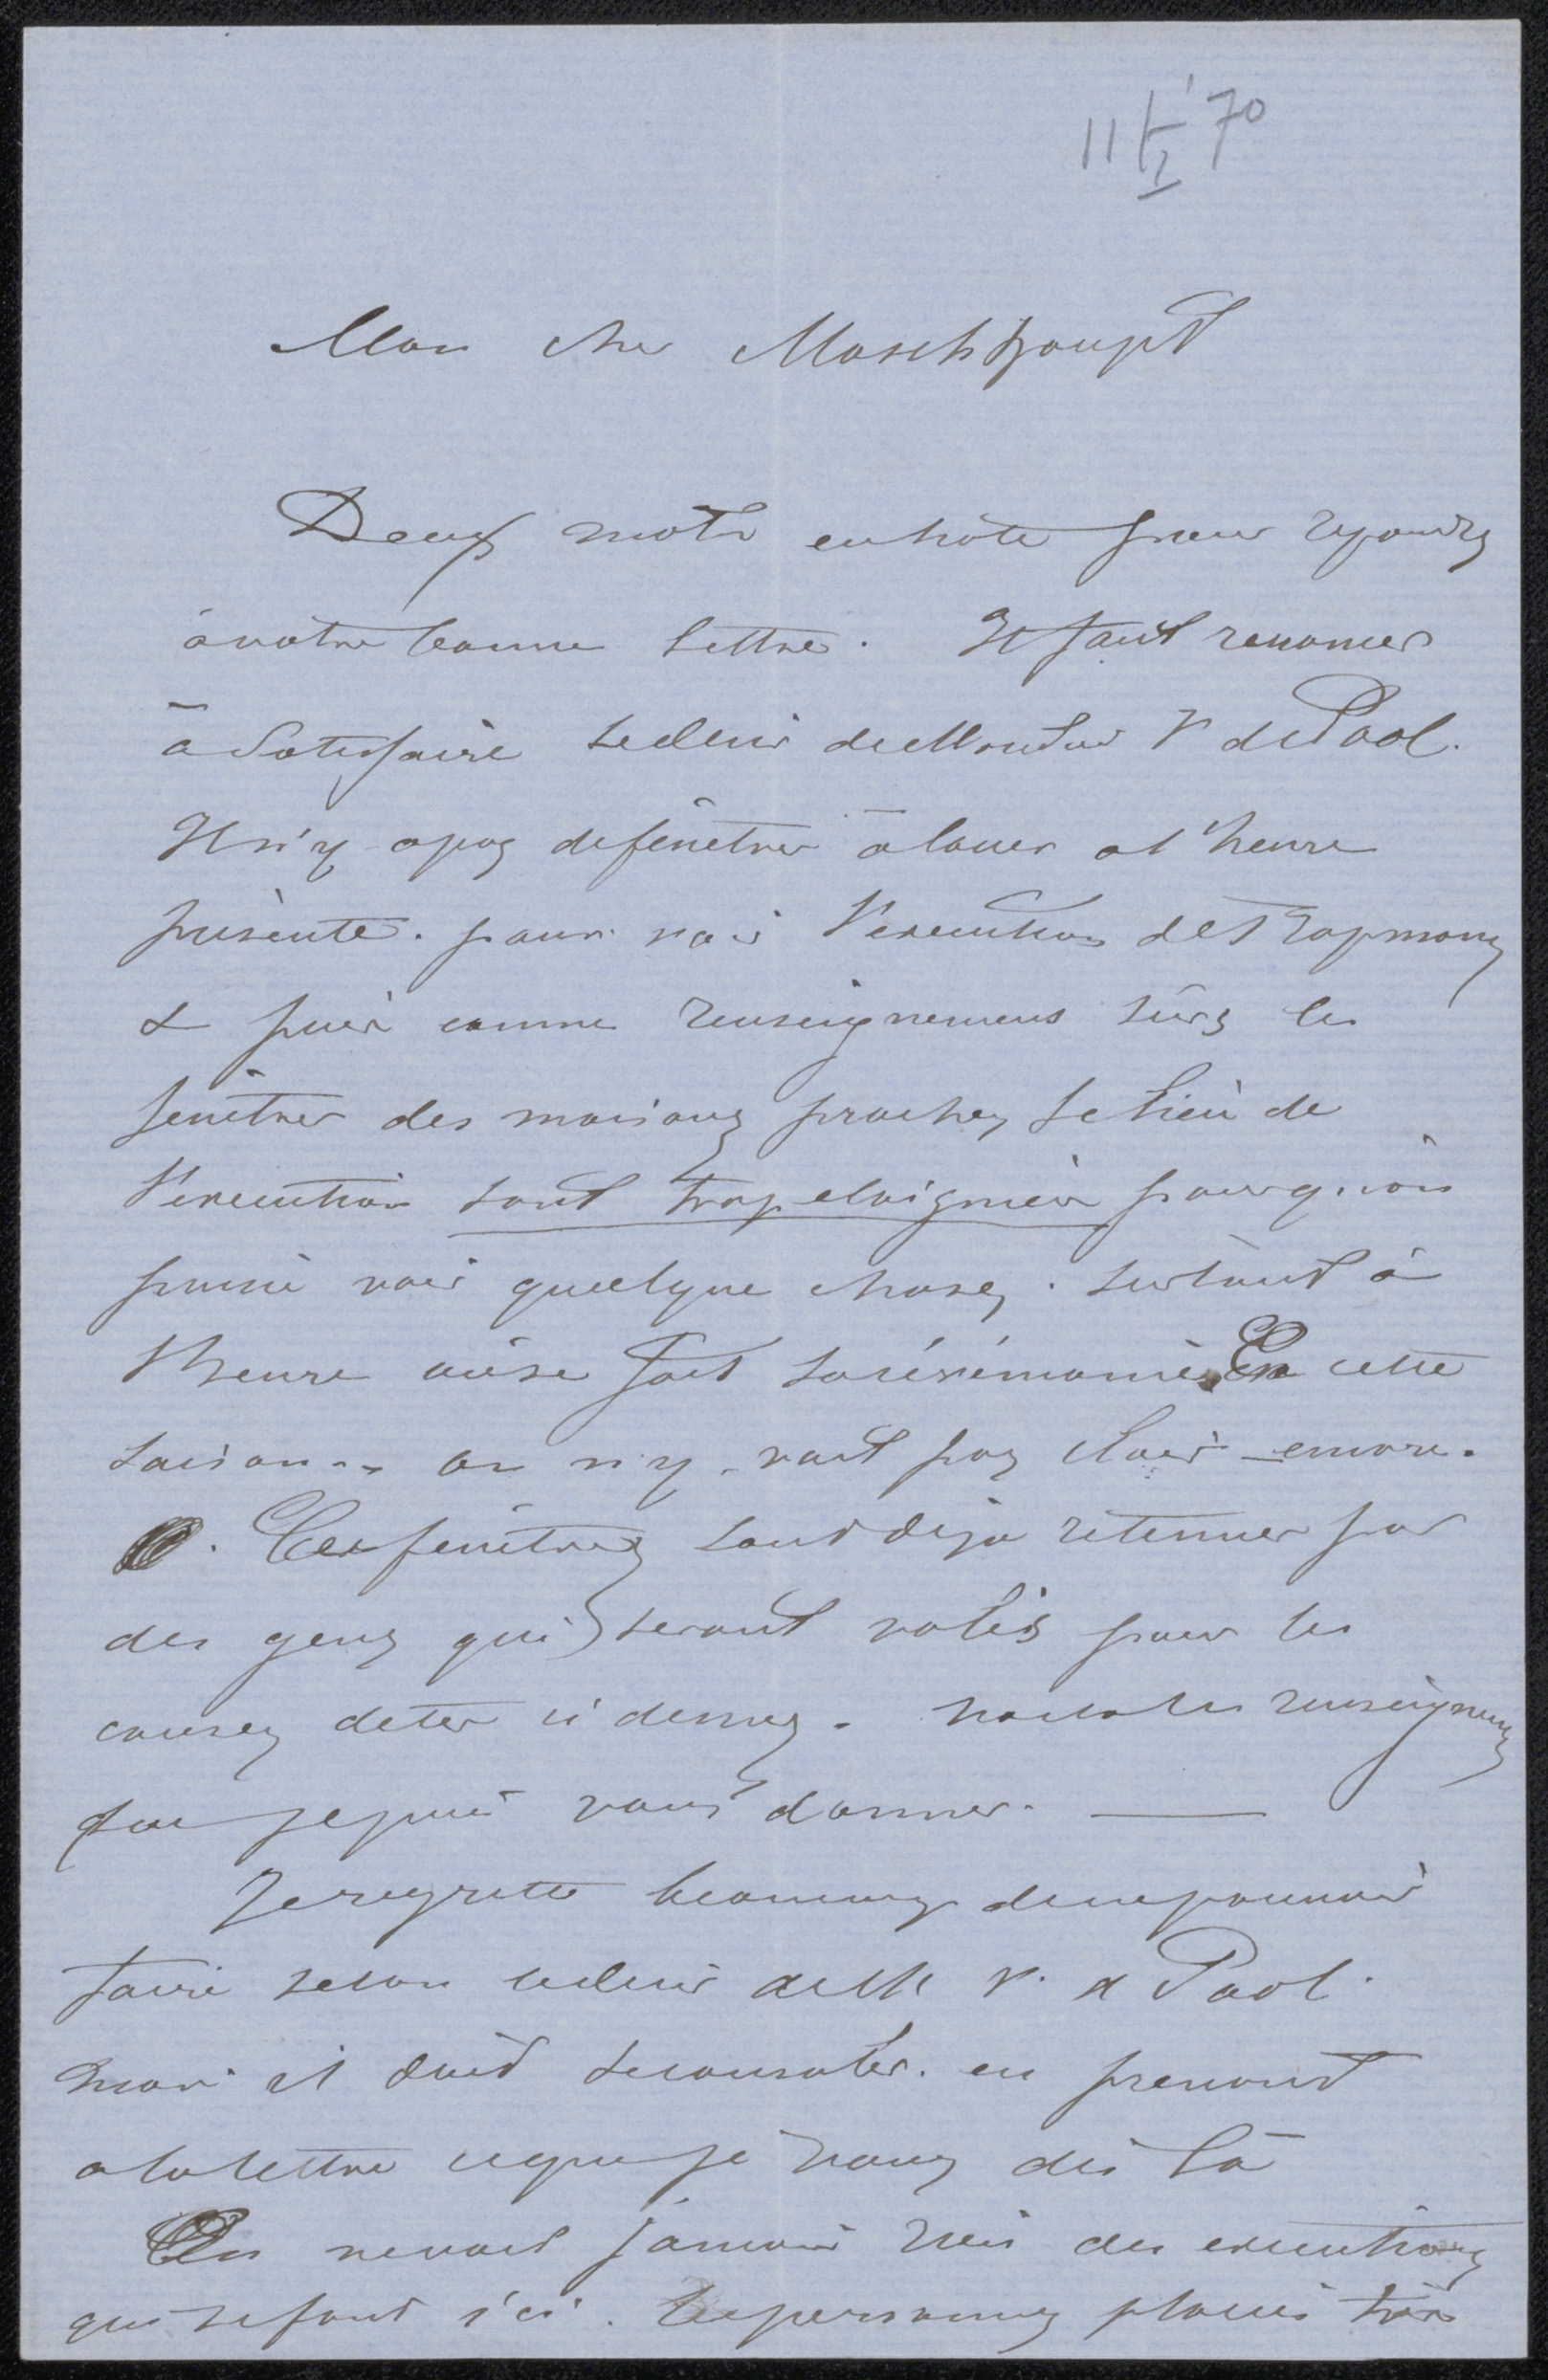 11/I '70
Mon cher Maschhaupt
Deux mots en hâte pour repondre
à votre bonne lettre. Il faut renoncer
à satisfaire le desir de Monsieur V de Pool.
Il n'y a pas de fenêtres à louer a l'heure
présente. pour voir l'execution de Tropmann
& puis comme renseignemens sûrs les
fenêtres des maisons proches le lieu de
l'execution sont trop eloignées pour q. l'on
puisse voir quelque chose, surtout à
l'heure où se fait la cérémonie. En cette
saison -- on n'y voit pas clair encore.
Ces fenêtres sont déja retenues par
des gens qui seront volés pour les
causes deter ci dessus. voila les renseignemens
que je puis vous donner. —
Je regrette beaucoup de ne pouvoir
faire selon le desir de M V. d Pool.
mais il doit se consoler. en prenant
a la lettre ce que je vous dis là
On ne voit jamais rien des executions
qui se font ici. Les personnes placés très